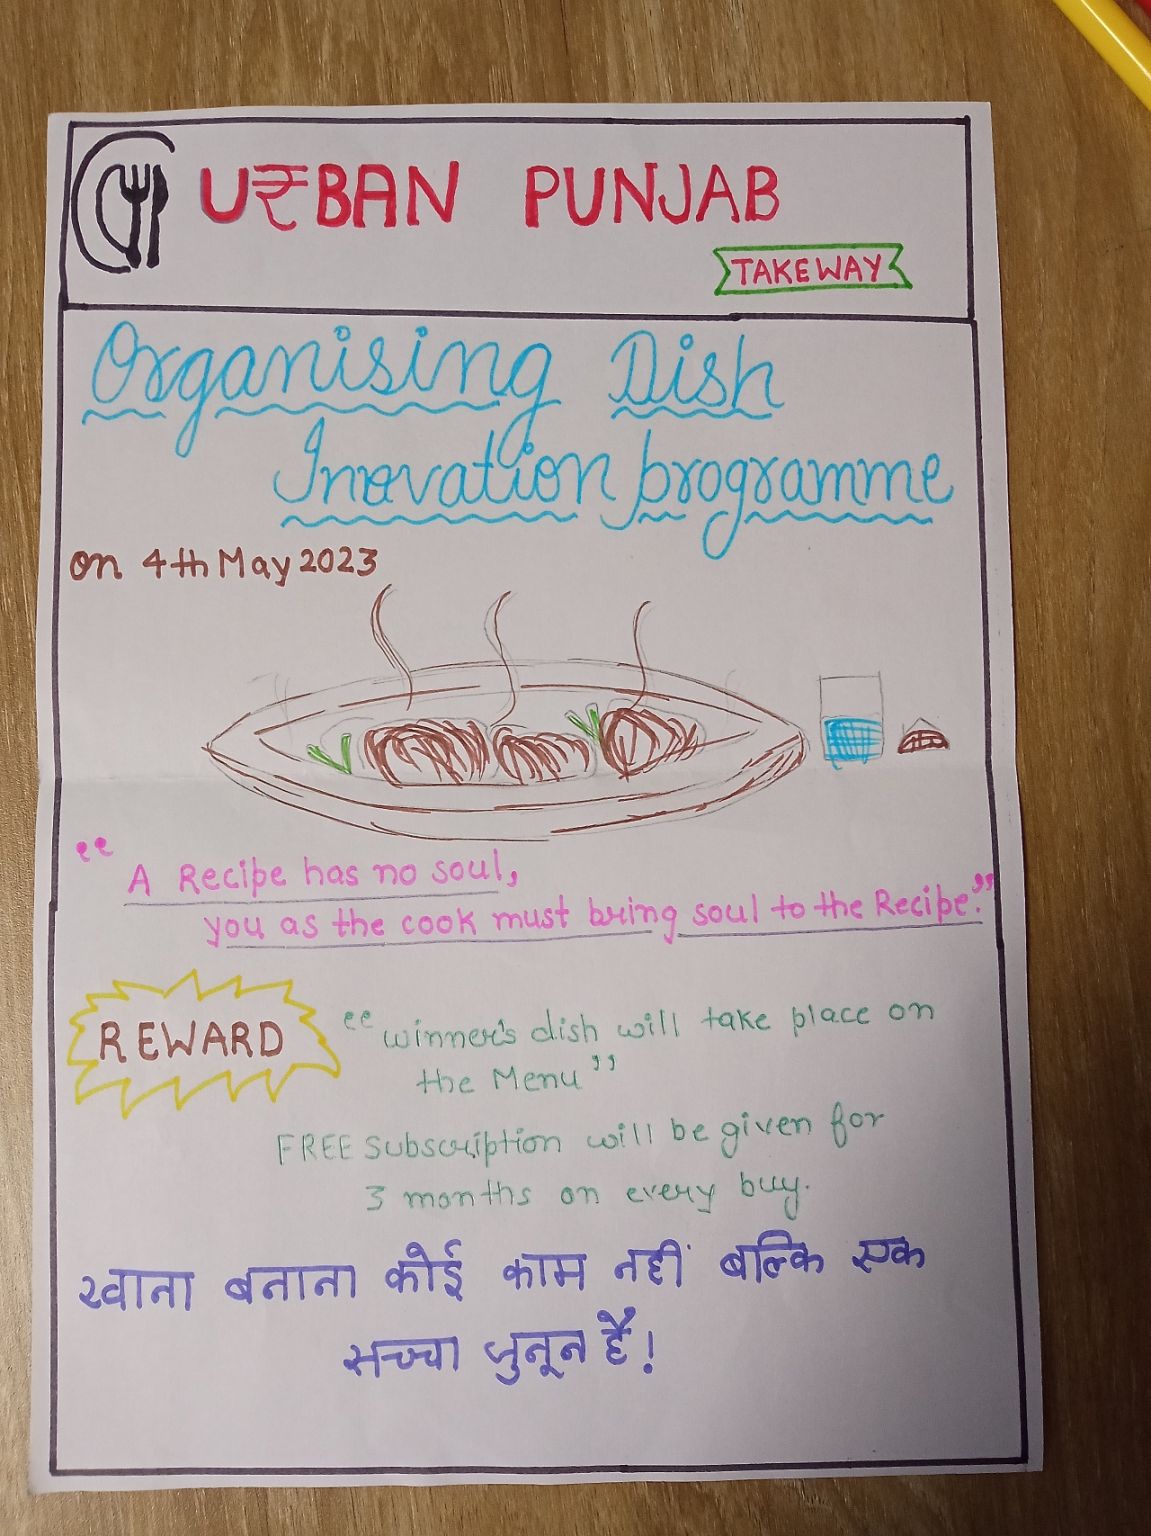 U₹BAN PUNJAB
TAKEWAY
Organising Dish
Inovation programme
on 4th May 2023
"A Recipe has no soul,
you as the cook must bring soul to the Recipe."
REWARD
"winner's dish will take place on
the Menu"
FREE subscription will be given for
3 months on every buy.
खाना बनाना कोई काम नहीं बल्कि एक
सच्चा जुनून है!